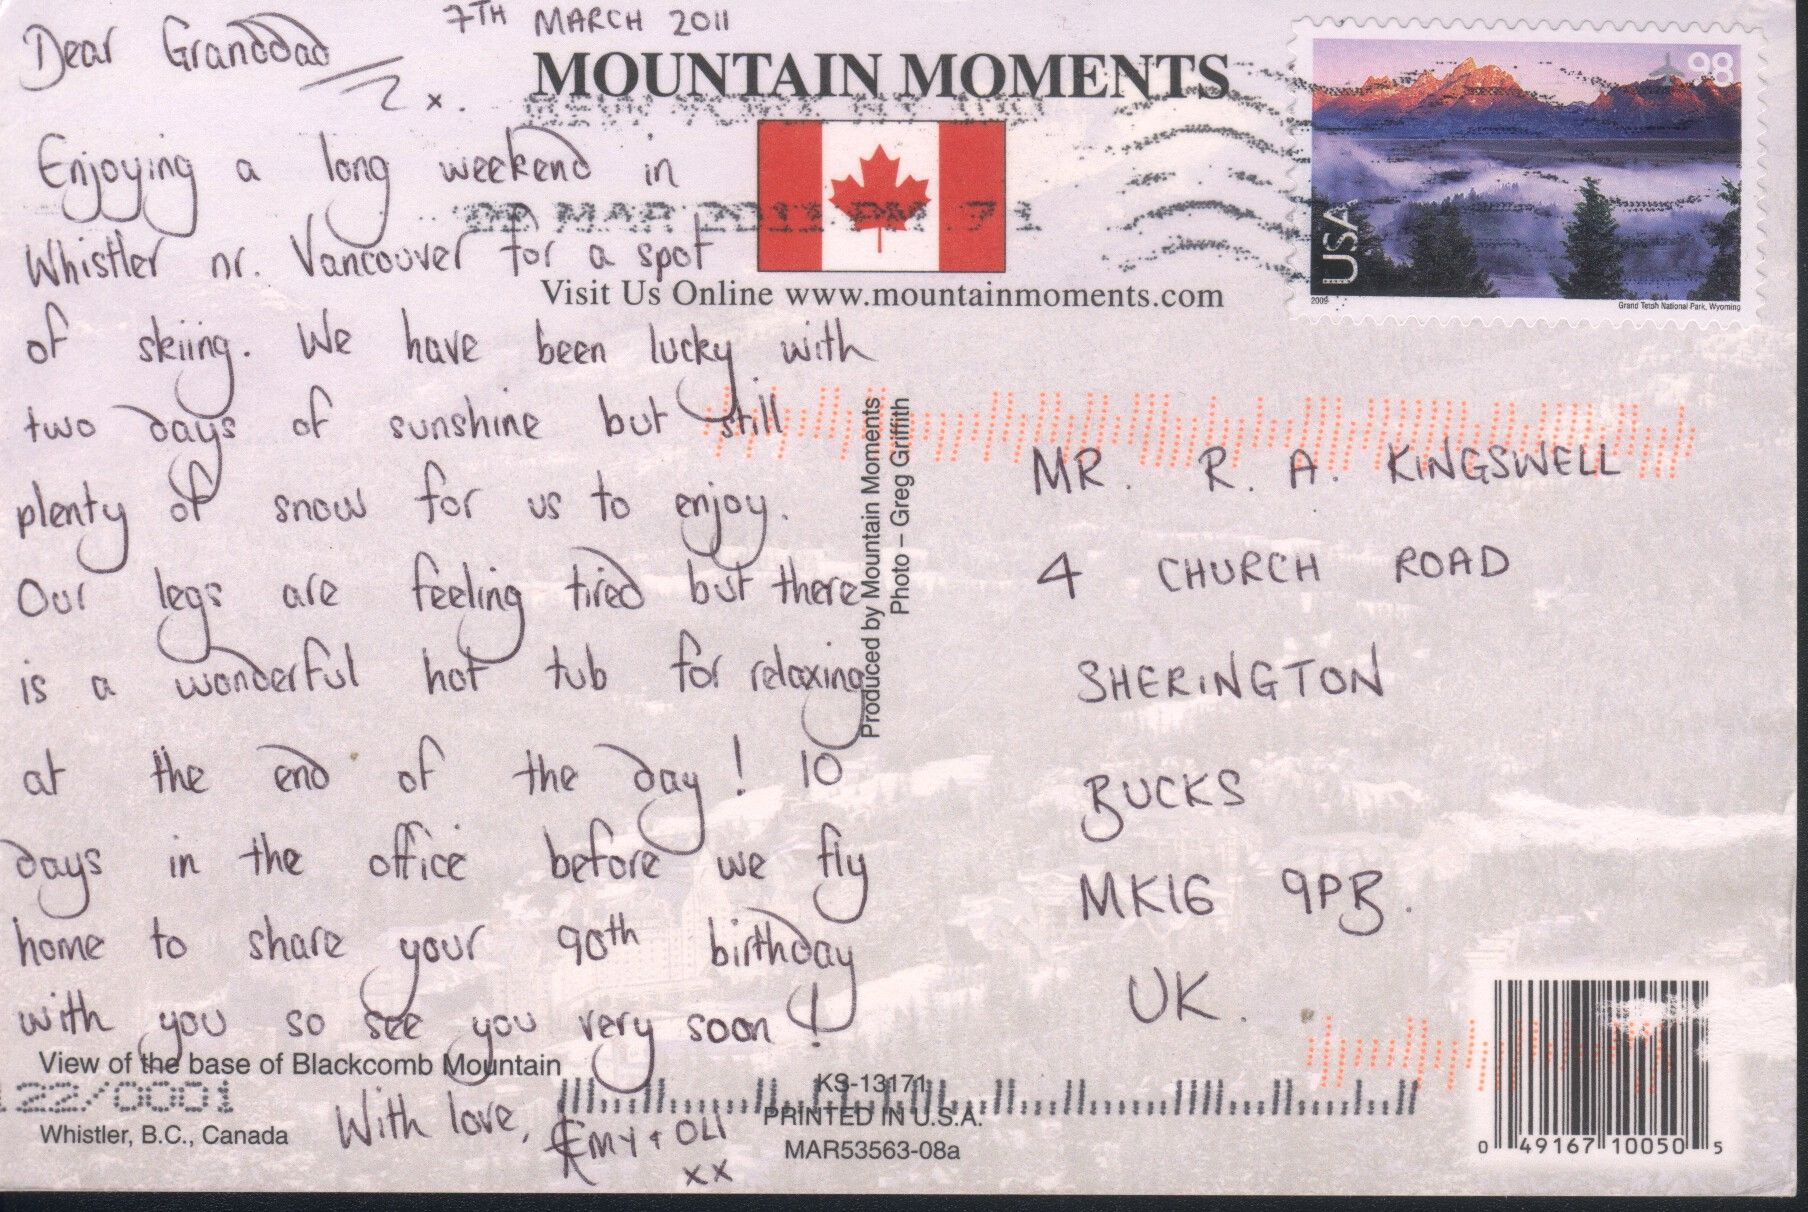 7TH MARCH 2011
Dear Granddad
x.
Enjoying a long weekend in
Whistler nr. Vancouver for a spot
of skiing. We have been lucky with
two days of sunshine but still
plenty of snow for us to enjoy.
Our legs are feeling tired but there
is a wonderful hot tub for relaxing
at the end of the day! 10
days in the office before we fly
home to share your 90th birthday
with you so see you very soon!
With love,
XX
MOUNTAIN MOMENTS
MAR 2011 PM
Visit Us Online www.mountainmoments.com
98
USA
2009
Grand Teton National Park, Wyoming
Produced by Mountain Moments
Photo – Greg Griffith
MR. R. A. KINGSWELL
4 CHURCH ROAD
SHERINGTON
BUCKS
MK16 9PB.
UK.
View of the base of Blackcomb Mountain
122/0001
Whistler, B.C., Canada
KS-13171
PRINTED IN U.S.A.
MAR53563-08a
0 49167 10050 5